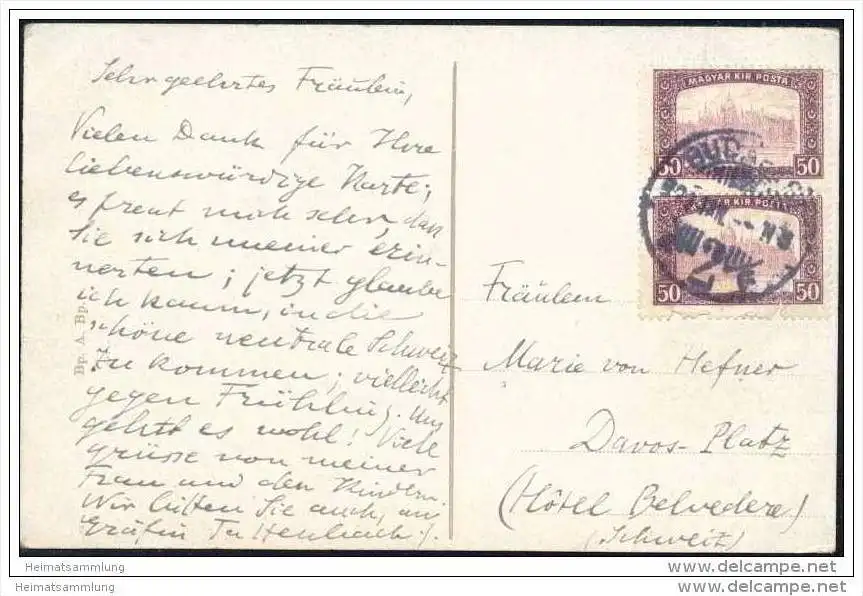 Sehr geehrtes Fräulein,
Vielen Dank für Ihre
liebenswürdige Karte;
es freut mich sehr, dass
Sie sich meiner erin-
nerten; jetzt glaube
ich kaum, in die
schöne neutrale Schweiz
zu kommen; vielleicht
gegen Frühling. Uns
geht es wohl! Viele
grüsse von meiner
Frau und den Kindern.
Wir bitten Sie auch, an
gräfin
Bp. A. Bp.
MAGYAR KIR. POSTA
50 50
MAGYAR KIR. POSTA
50 50
BUDAPEST
Fräulein
Marie von Hefner
Davos-Platz
(Hôtel Belvedere)
(Schweiz)
Heimatsammlung
Heimatsammlung
www.delcampe.net
www.delcampe.net